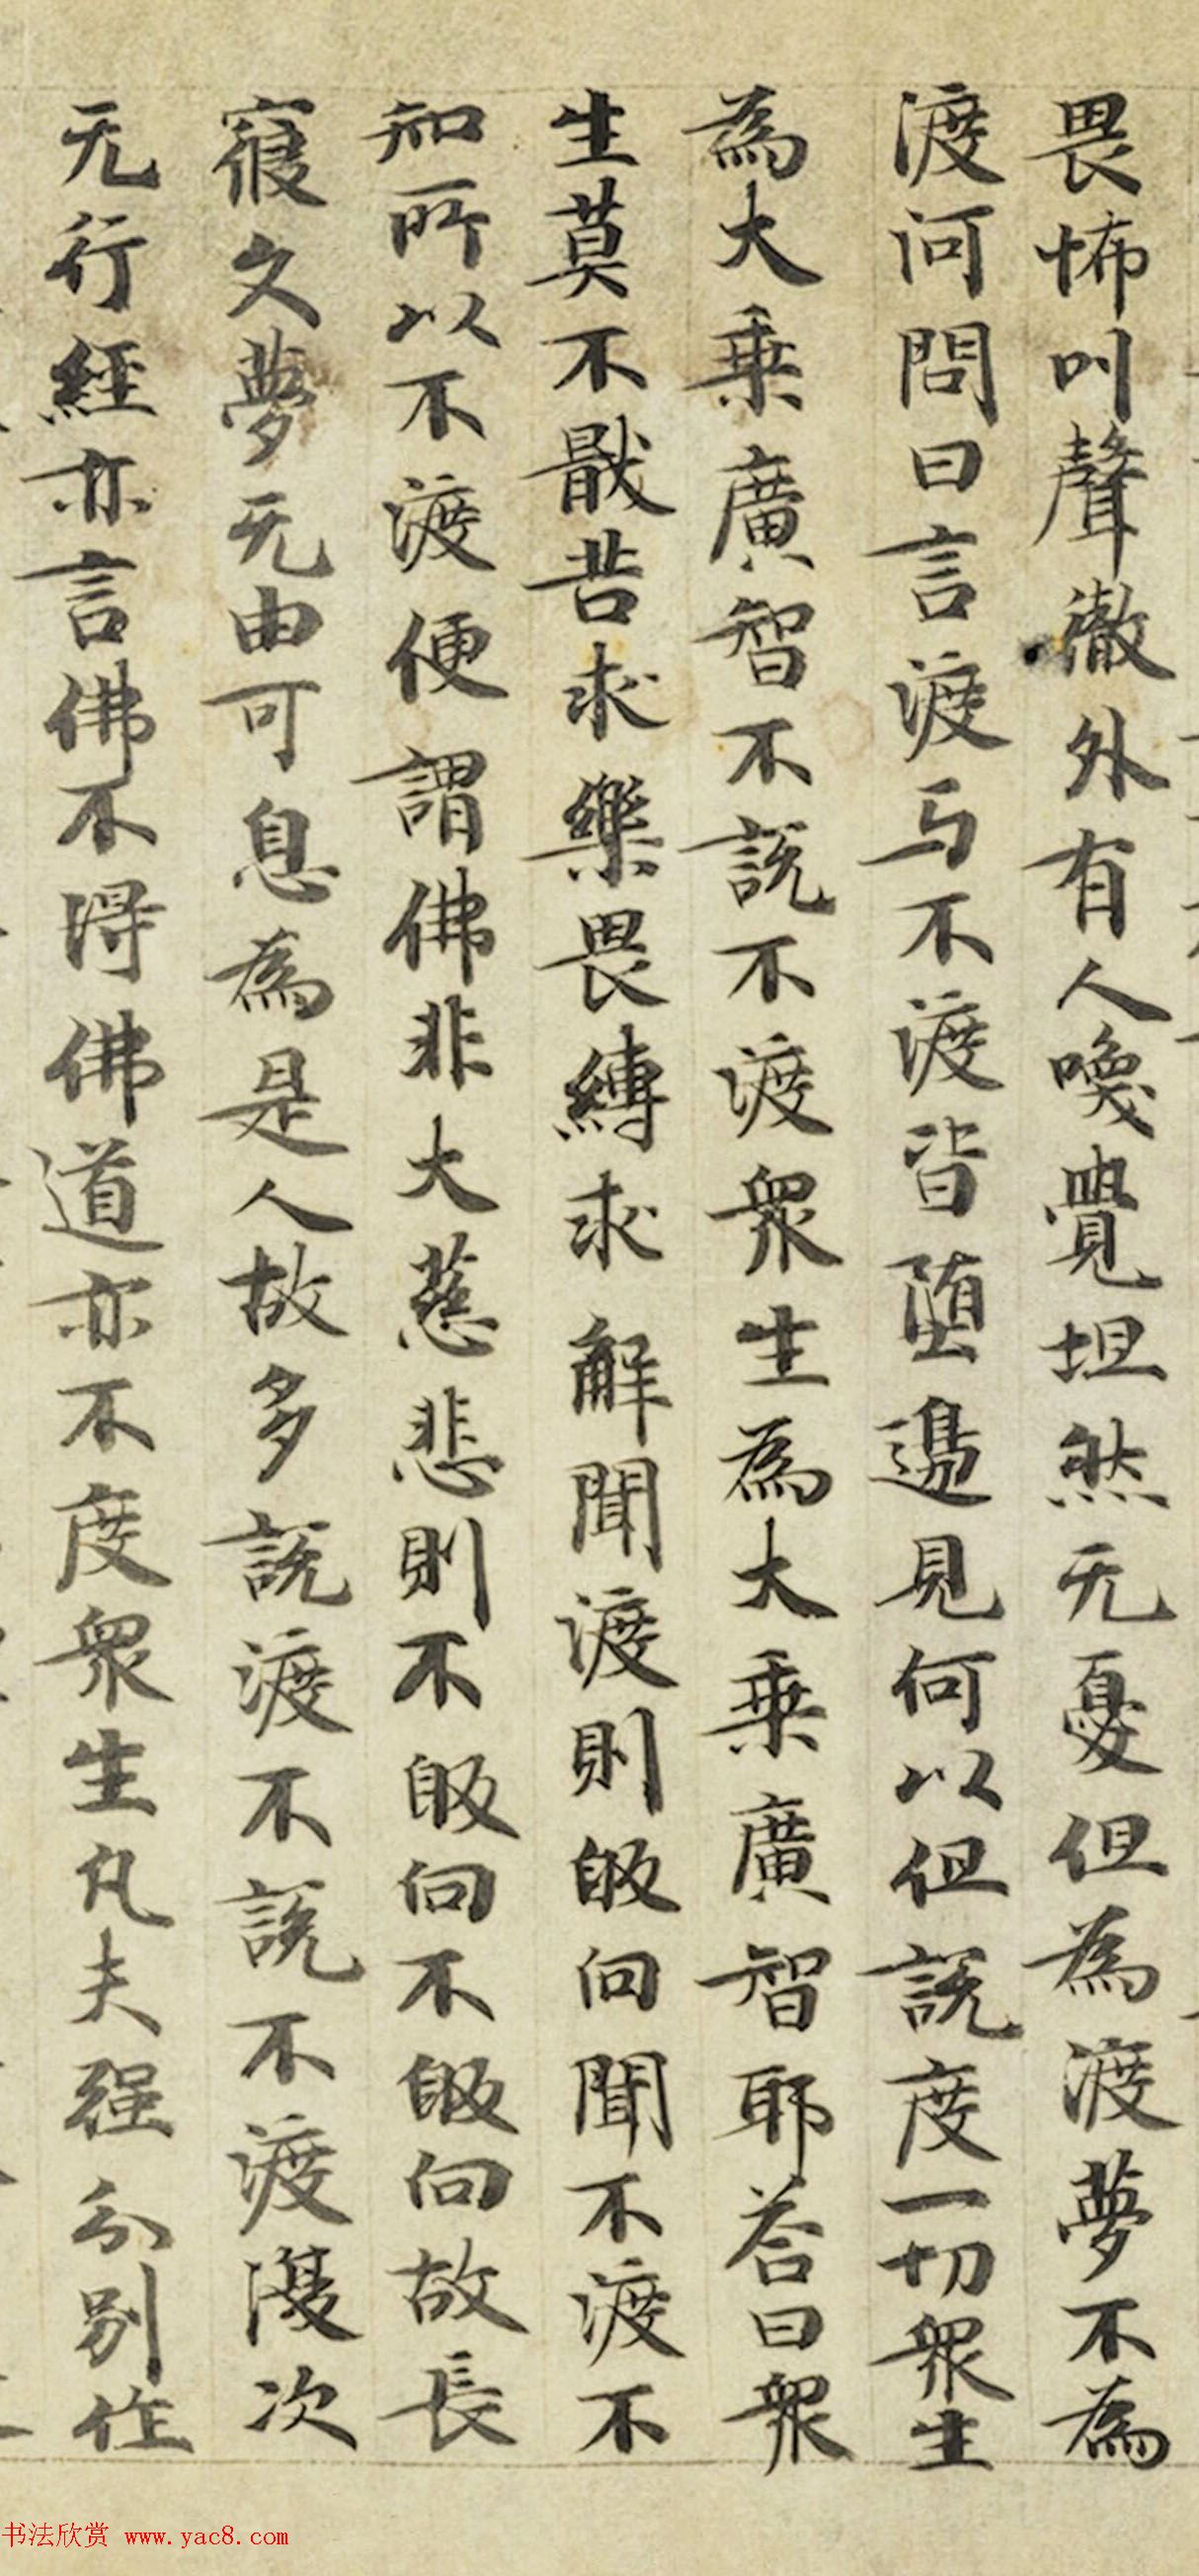 畏怖叫聲徹外有人喚覺坦然无憂但為渡夢不為
渡河問曰言渡与不渡皆墮邊見何以但說度一切眾生
為大乗廣智不說不渡眾生為大乗廣智耶荅曰眾
生莫不猒苦求樂畏縛求解聞渡則皈向聞不渡不
知所以不渡便謂佛非大慈悲則不皈向不皈向故長
寢久夢无由可息為是人故多說渡不說不渡澓次
无行經亦言佛不得佛道亦不度眾生凡夫强分别作
书法欣赏 www.yac8.com